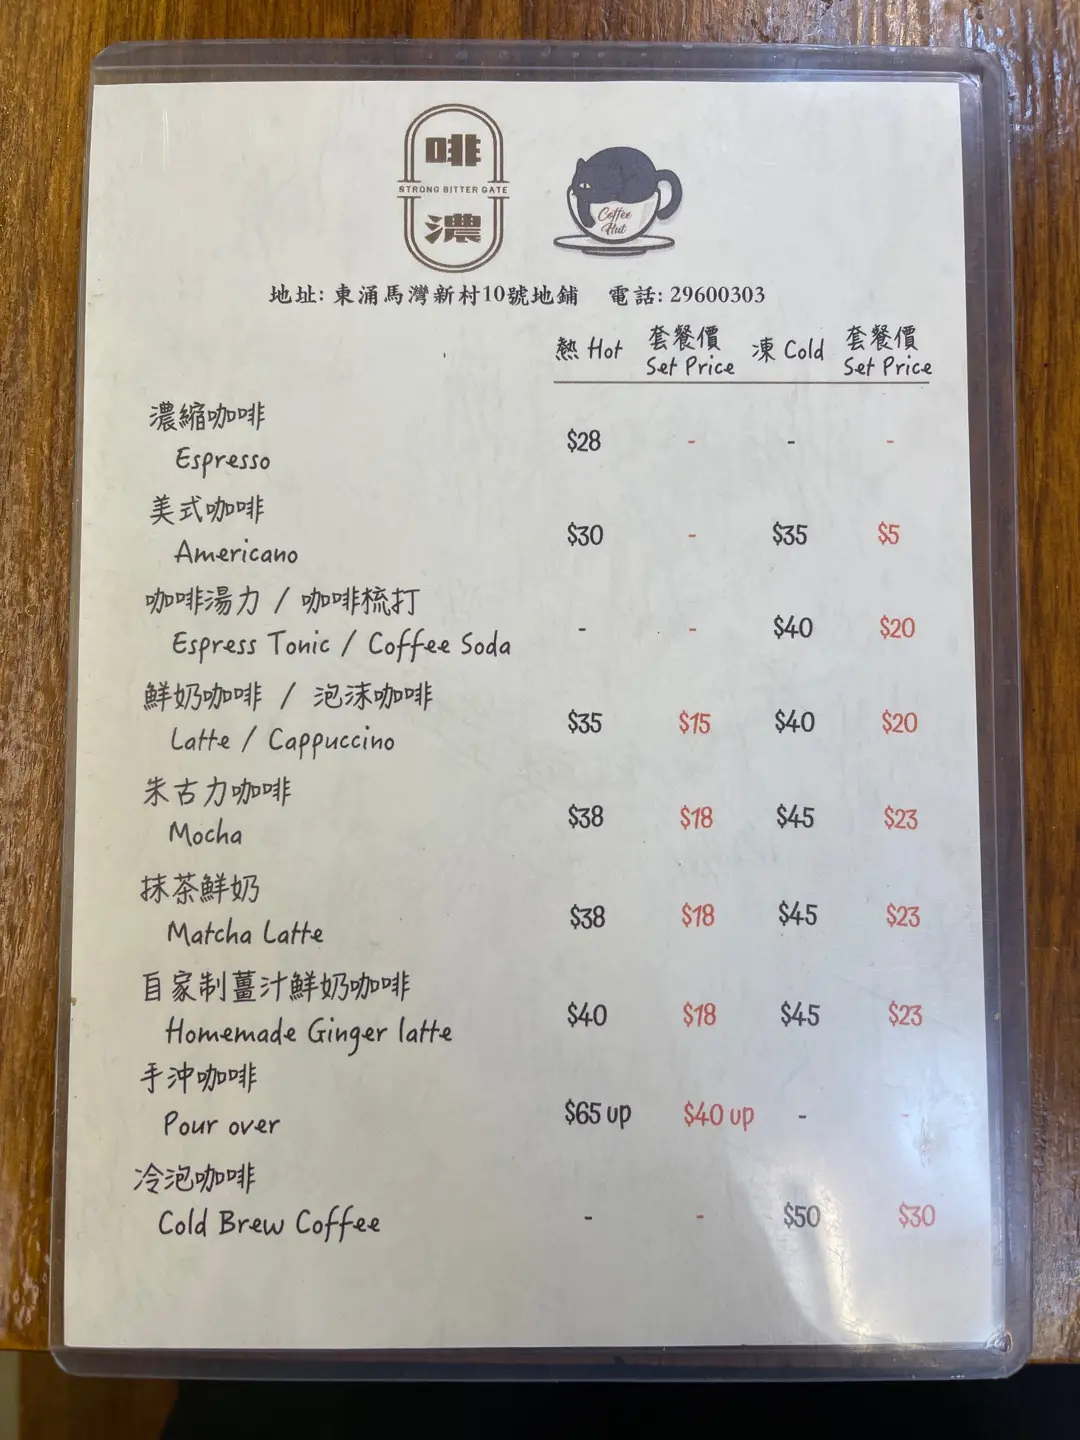 啡
STRONG BITTER GATE
濃
Coffee
Hut
地址: 東涌馬灣新村10號地鋪 電話: 29600303
熱 Hot 套餐價 Set Price 凍 Cold 套餐價 Set Price
濃縮咖啡
Espresso $28 - - -
美式咖啡
Americano $30 - $35 $5
咖啡湯力 / 咖啡梳打
Espress Tonic / Coffee Soda - - $40 $20
鮮奶咖啡 / 泡沫咖啡
Latte / Cappuccino $35 $15 $40 $20
朱古力咖啡
Mocha $38 $18 $45 $23
抹茶鮮奶
Matcha Latte $38 $18 $45 $23
自家制薑汁鮮奶咖啡
Homemade Ginger latte $40 $18 $45 $23
手沖咖啡
Pour over $65 up $40 up - -
冷泡咖啡
Cold Brew Coffee - - $50 $30